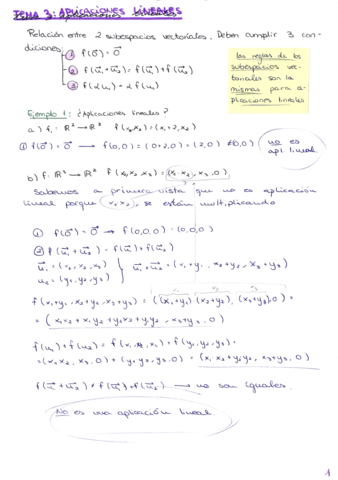 TEMA 3: APLICACIONES LINEALES
Relación entre 2 subespacios vectoriales. Deben cumplir 3 con-
diciones:
① f(0⃗) = 0⃗
② f(u⃗₁+u⃗₂) = f(u⃗₁)+f(u⃗₂)
③ f(αu₁) = α f(u₁)
Las reglas de los
subespacios vec-
toriales son la
mismas para a-
plicaciones lineales
Ejemplo 1: ¿Aplicaciones lineales?
a) f: ℝ² → ℝ² f(x₁x₂) = (x₁+2, x₂)
① f(0⃗) = 0⃗ → f(0,0) = (0+2,0) = (2,0) ≠ (0,0)
no es
apl. lineal
b) f: ℝ³ → ℝ³ f(x₁,x₂,x₃) = (x₁·x₂, x₃, 0)
Sabemos a primera vista que no es aplicación
lineal porque (x₁x₂), se están multiplicando
① f(0⃗) = 0⃗ → f(0,0,0) = (0,0,0)
② f(u⃗₁+u⃗₂) = f(u⃗₁)+f(u⃗₂)
u⃗₁ = (x₁, x₂, x₃)
u₂ = (y₁, y₂, y₃)
u⃗₁+u⃗₂ = (x₁+y₁, x₂+y₂, x₃+y₃)
f(x₁+y₁, x₂+y₂, x₃+y₃) = ((x₁+y₁)·(x₂+y₂), (x₃+y₃), 0) =
= (x₁x₂ + x₁y₂ + y₁x₂ + y₁y₂, x₃+y₃, 0)
f(u₁)+f(u₂) = f(x₁,x₂,x₃)+f(y₁,y₂,y₃) =
= (x₁x₂, x₃, 0) + (y₁y₂, y₃, 0) = (x₁x₂+y₁y₂, x₃+y₃, 0)
f(u⃗₁+u⃗₂) ≠ f(u⃗₁)+f(u⃗₂) → no son iguales.
No es una aplicación lineal
1